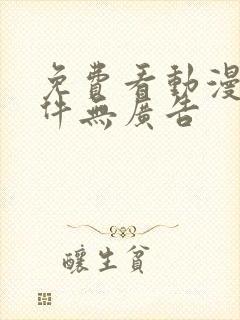 免費看動漫
件無廣告
釀生貧